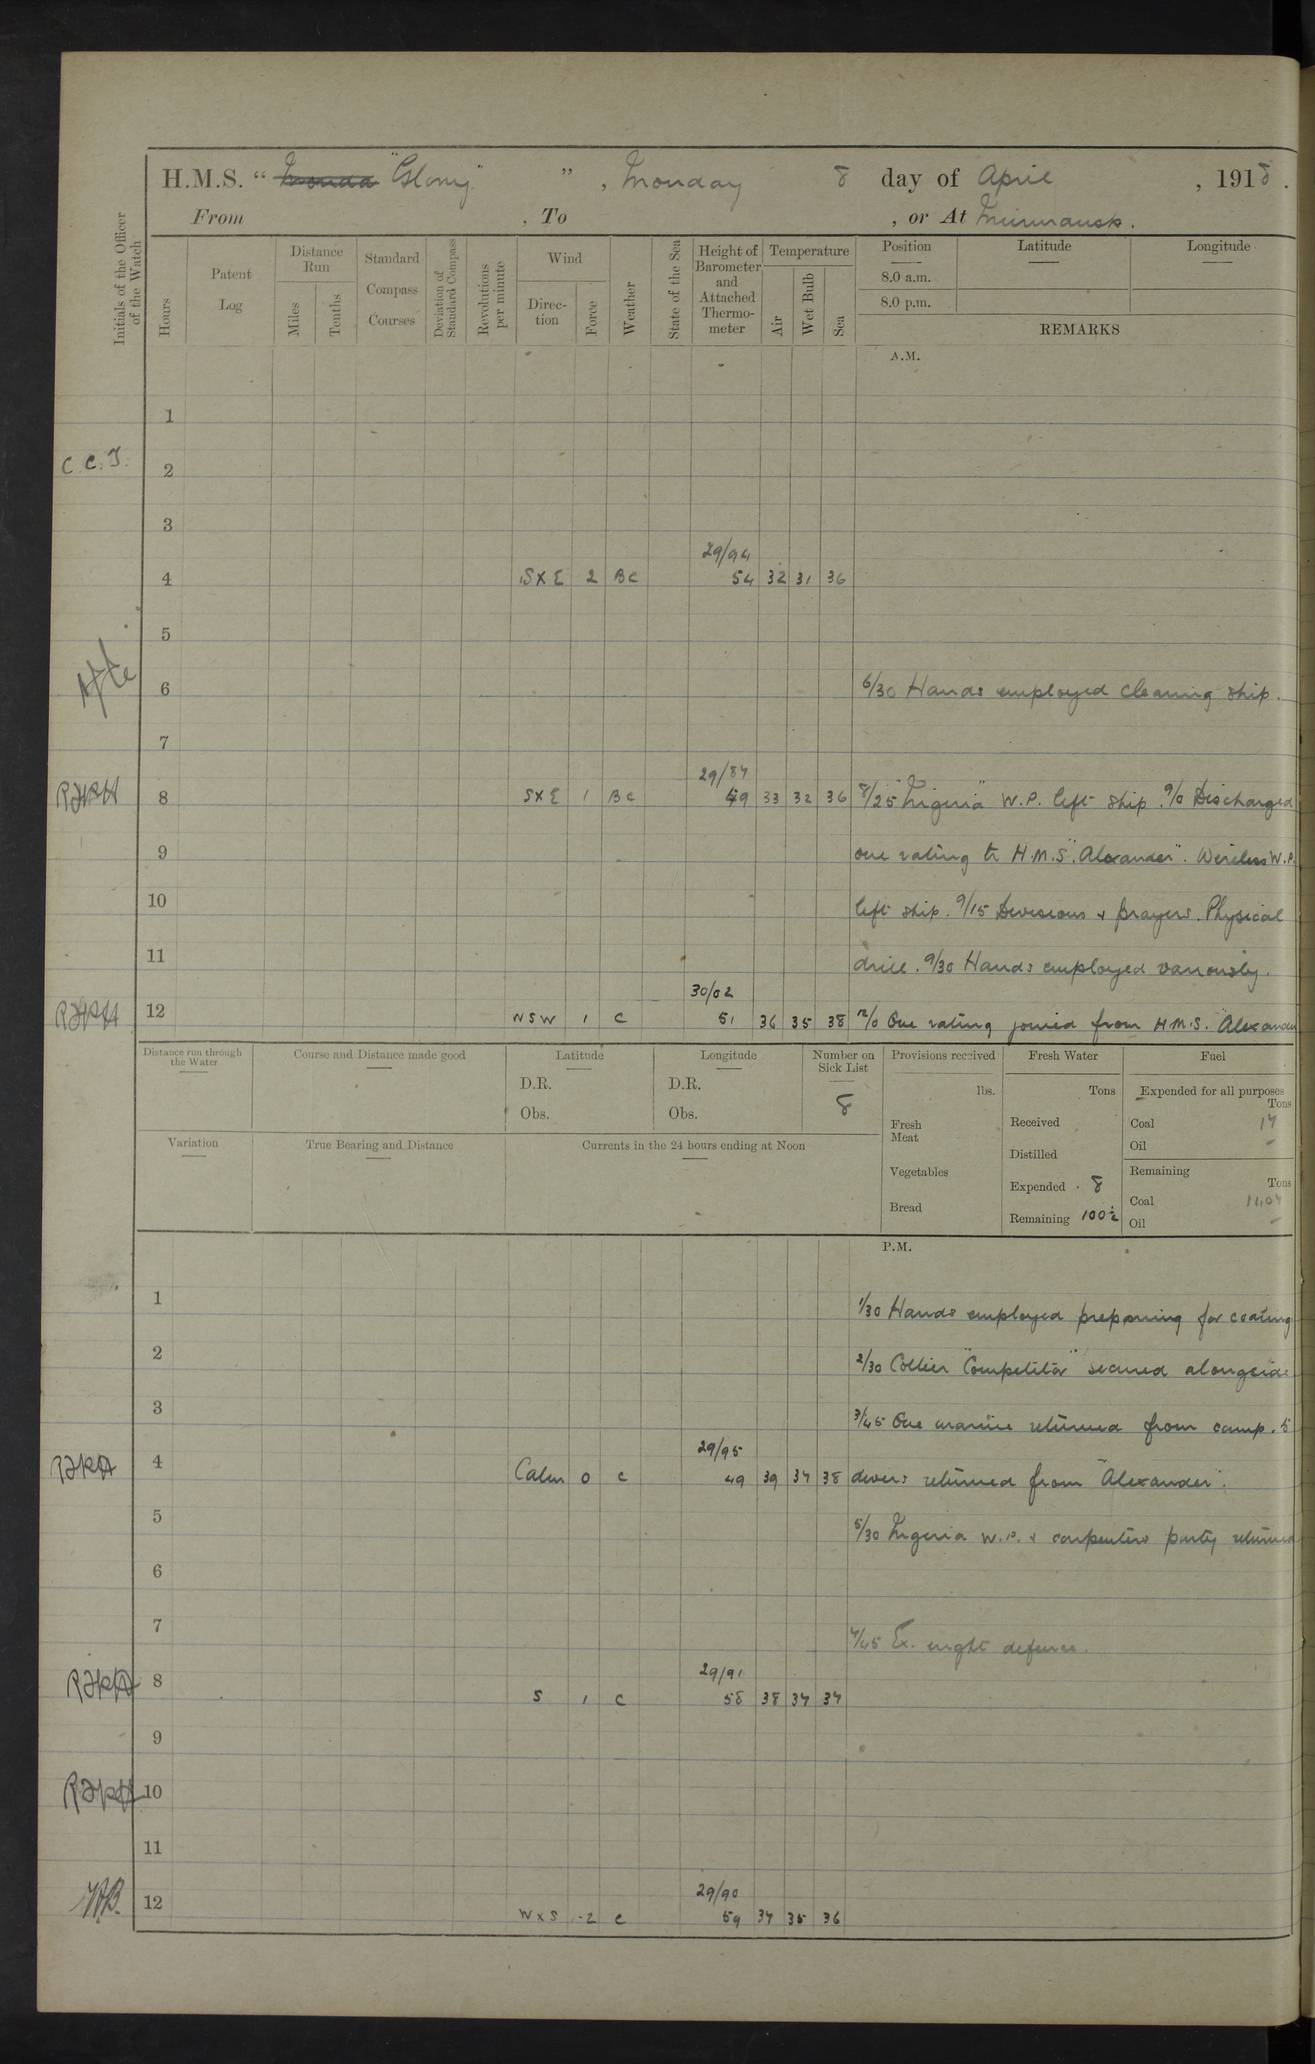 H.M.S. " "Glory" " , Monday 8 day of April , 1918 .
From , To , or At Murmansk.
Initials of the Officer of the Watch
Hours
Patent Log
Distance Run
Miles
Tenths
Standard Compass Courses
Deviation of Standard Compass
Revolutions per minute
Wind
Direction
Force
Weather
State of the Sea
Height of Barometer and Attached Thermometer
Temperature
Air
Wet Bulb
Sea
Position
8.0 a.m.
8.0 p.m.
Latitude
Longitude
REMARKS
A.M.
1
C.C.T. 2
3
29/94
4 S X E 2 BC 54 32 31 36
5
6 6/30 Hands employed cleaning ship.
7
29/87
8 S X E 1 BC 49 33 32 36 8/25 "Nigeria" W.P. left ship. 9/0 Discharged
9 one rating to H.M.S. "Alexander". Wireless W.P.
10 left ship. 9/15 Divisions & prayers. Physical
11 drill. 9/30 Hands employed variously.
30/02
12 WSW 1 C 51 36 35 38 12/0 One rating joined from H.M.S. "Alexander
Distance run through the Water
Course and Distance made good
Latitude
D.R.
Obs.
Longitude
D.R.
Obs.
Number on Sick List
8
Provisions received
lbs.
Fresh Meat
Vegetables
Bread
Fresh Water
Tons
Received
Distilled
Expended 8
Remaining 100½
Fuel
Expended for all purposes
Tons
Coal 17
Oil -
Remaining
Tons
Coal 1107
Oil -
Variation
True Bearing and Distance
Currents in the 24 hours ending at Noon
P.M.
1 1/30 Hands employed preparing for coaling
2 2/30 Collier "Competitor" secured alongside
3 3/45 One marine returned from camp. 5
29/95
4 Calm 0 C 49 39 37 38 divers returned from "Alexander".
5 5/30 Nigeria W.P. & carpenters party returned
6
7 7/45 Ex. night defence.
29/91
8 S 1 C 58 38 37 37
9
10
11
29/90
12 W X S 2 C 59 37 35 36